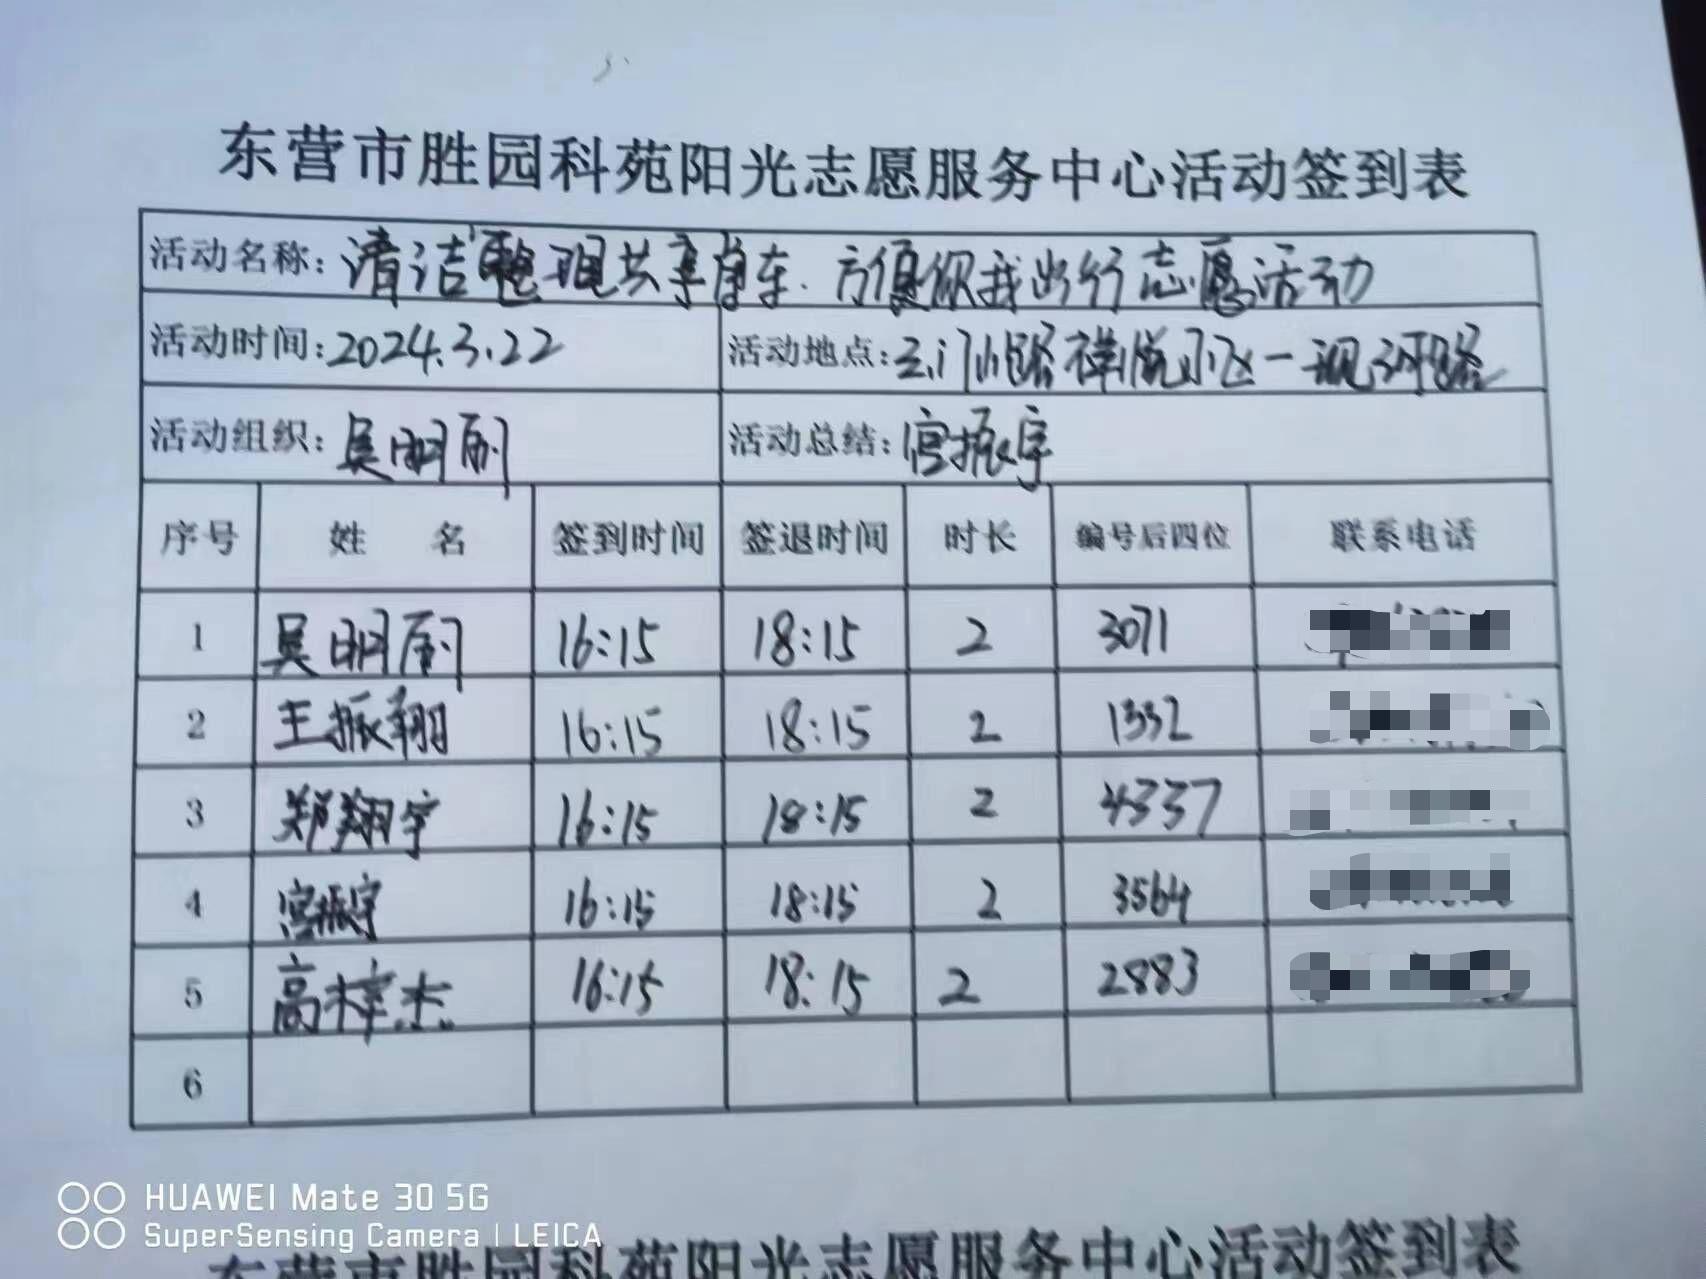 东营市胜园科苑阳光志愿服务中心活动签到表
活动名称：清洁整理共享单车.方便你我出行志愿活动
活动时间：2024.3.22 活动地点：三门路祥悦小区一现河路
活动组织：吴明 活动总结：宫振宇
序号 姓 名 签到时间 签退时间 时长 编号后四位 联系电话
1 吴明 16:15 18:15 2 3071
2 王振翔 16:15 18:15 2 1332
3 郑翔宇 16:15 18:15 2 4337
4 宫振宇 16:15 18:15 2 3564
5 高梓杰 16:15 18:15 2 2883
6
HUAWEI Mate 30 5G
SuperSensing Camera | LEICA
东营市胜园科苑阳光志愿服务中心活动签到表